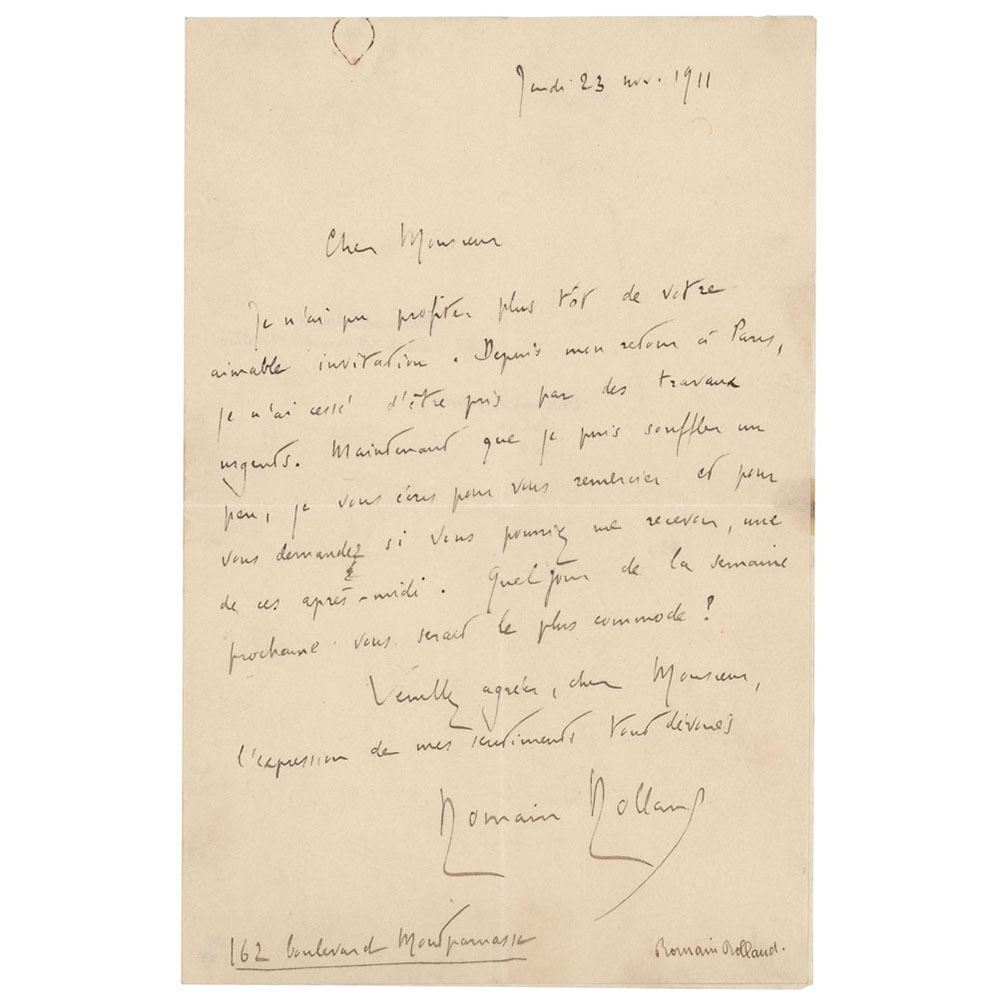 Jeudi 23 nov. 1911
Cher Monsieur
Je n'ai pu profiter plus tôt de votre
aimable invitation. Depuis mon retour à Paris,
je n'ai cessé d'être pris par des travaux
urgents. Maintenant que je puis souffler un
peu, je vous écris pour vous remercier et pour
vous demander si vous pourriez me recevoir, une
de ces après-midi. Quel jour de la semaine
prochaine vous serait le plus commode?
Veuillez agréer, cher Monsieur,
l'expression de mes sentiments tout dévoués
Romain Rolland
162 boulevard Montparnasse
Romain Rolland.